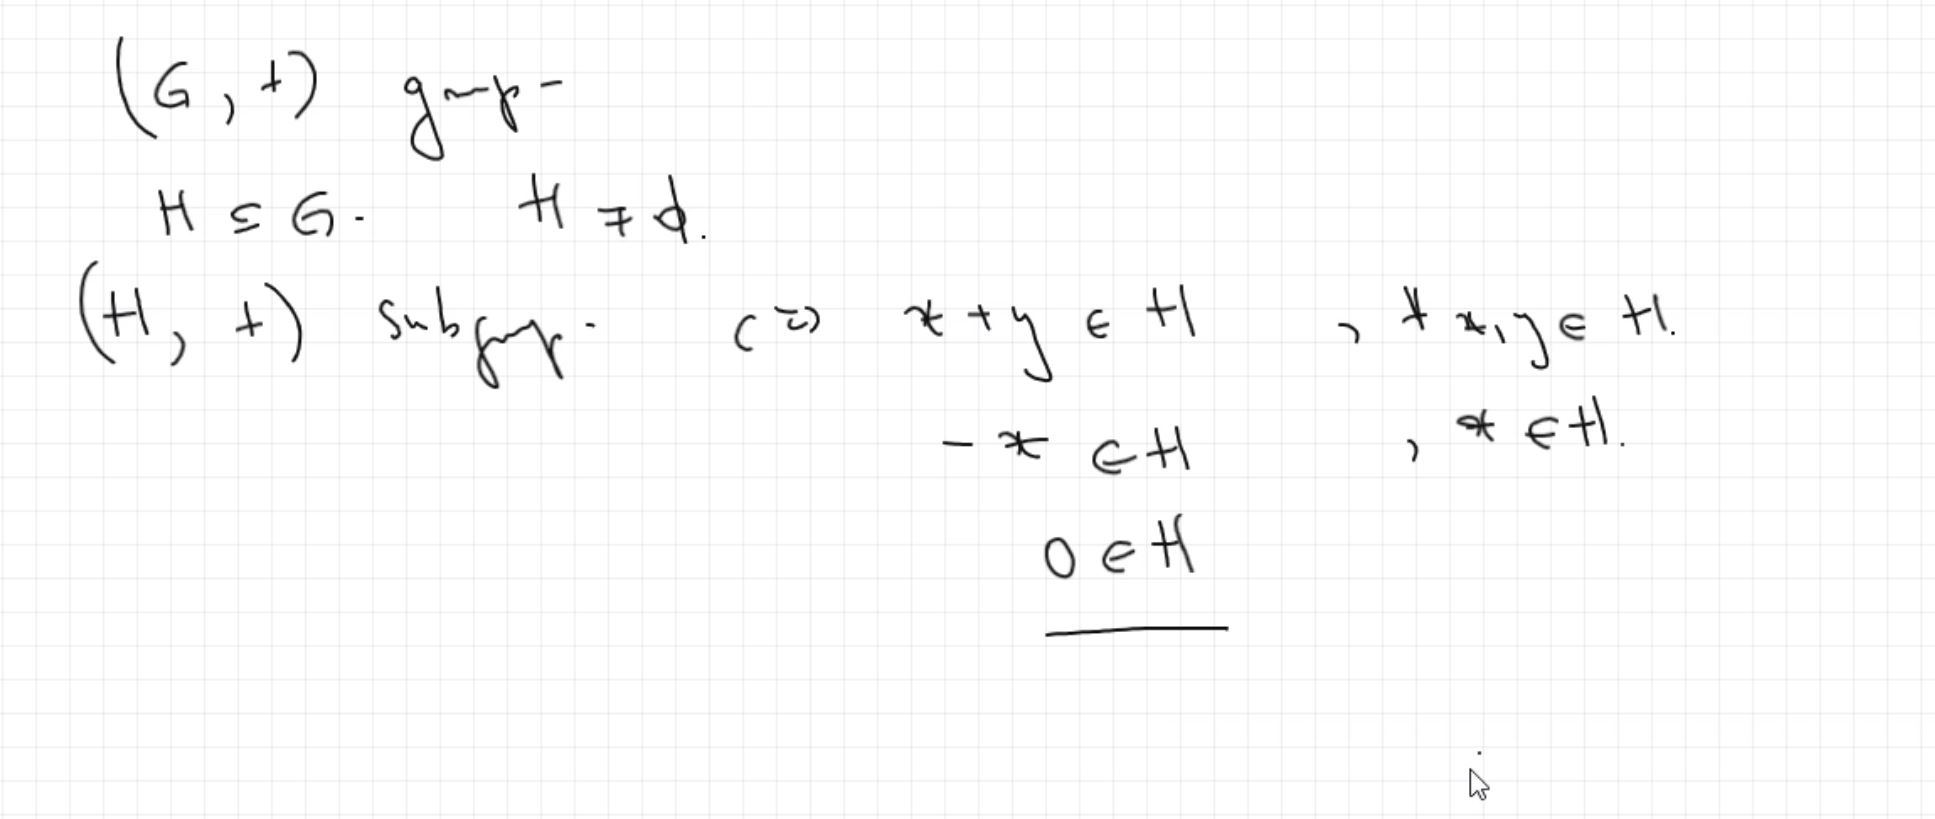 (G, +) group.
H ⊆ G. H ≠ ϕ.
(H, +) subgroup. ⇔ x + y ∈ H , ∀ x, y ∈ H.
- x ∈ H , x ∈ H.
0 ∈ H